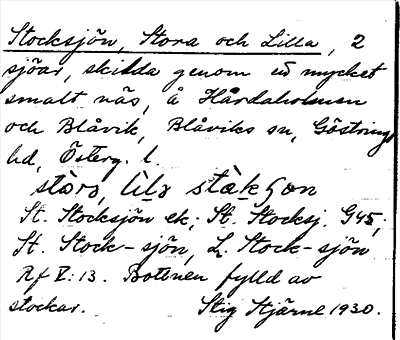 Stocksjön, Stora och Lilla, 2
sjöar, skilda genom ett mycket
smalt näs, å Hårdaholmen
och Blåvik, Blåviks sn, Göstrings
hd, Österg. l.
stòra, lìla stækʃon
St. Stocksjön ek, St. Stocksj. G45,
St. Stock-sjön, L. Stock-sjön
Rf V:13. Bottnen fylld av
stockar. Stig Stjärne 1930.